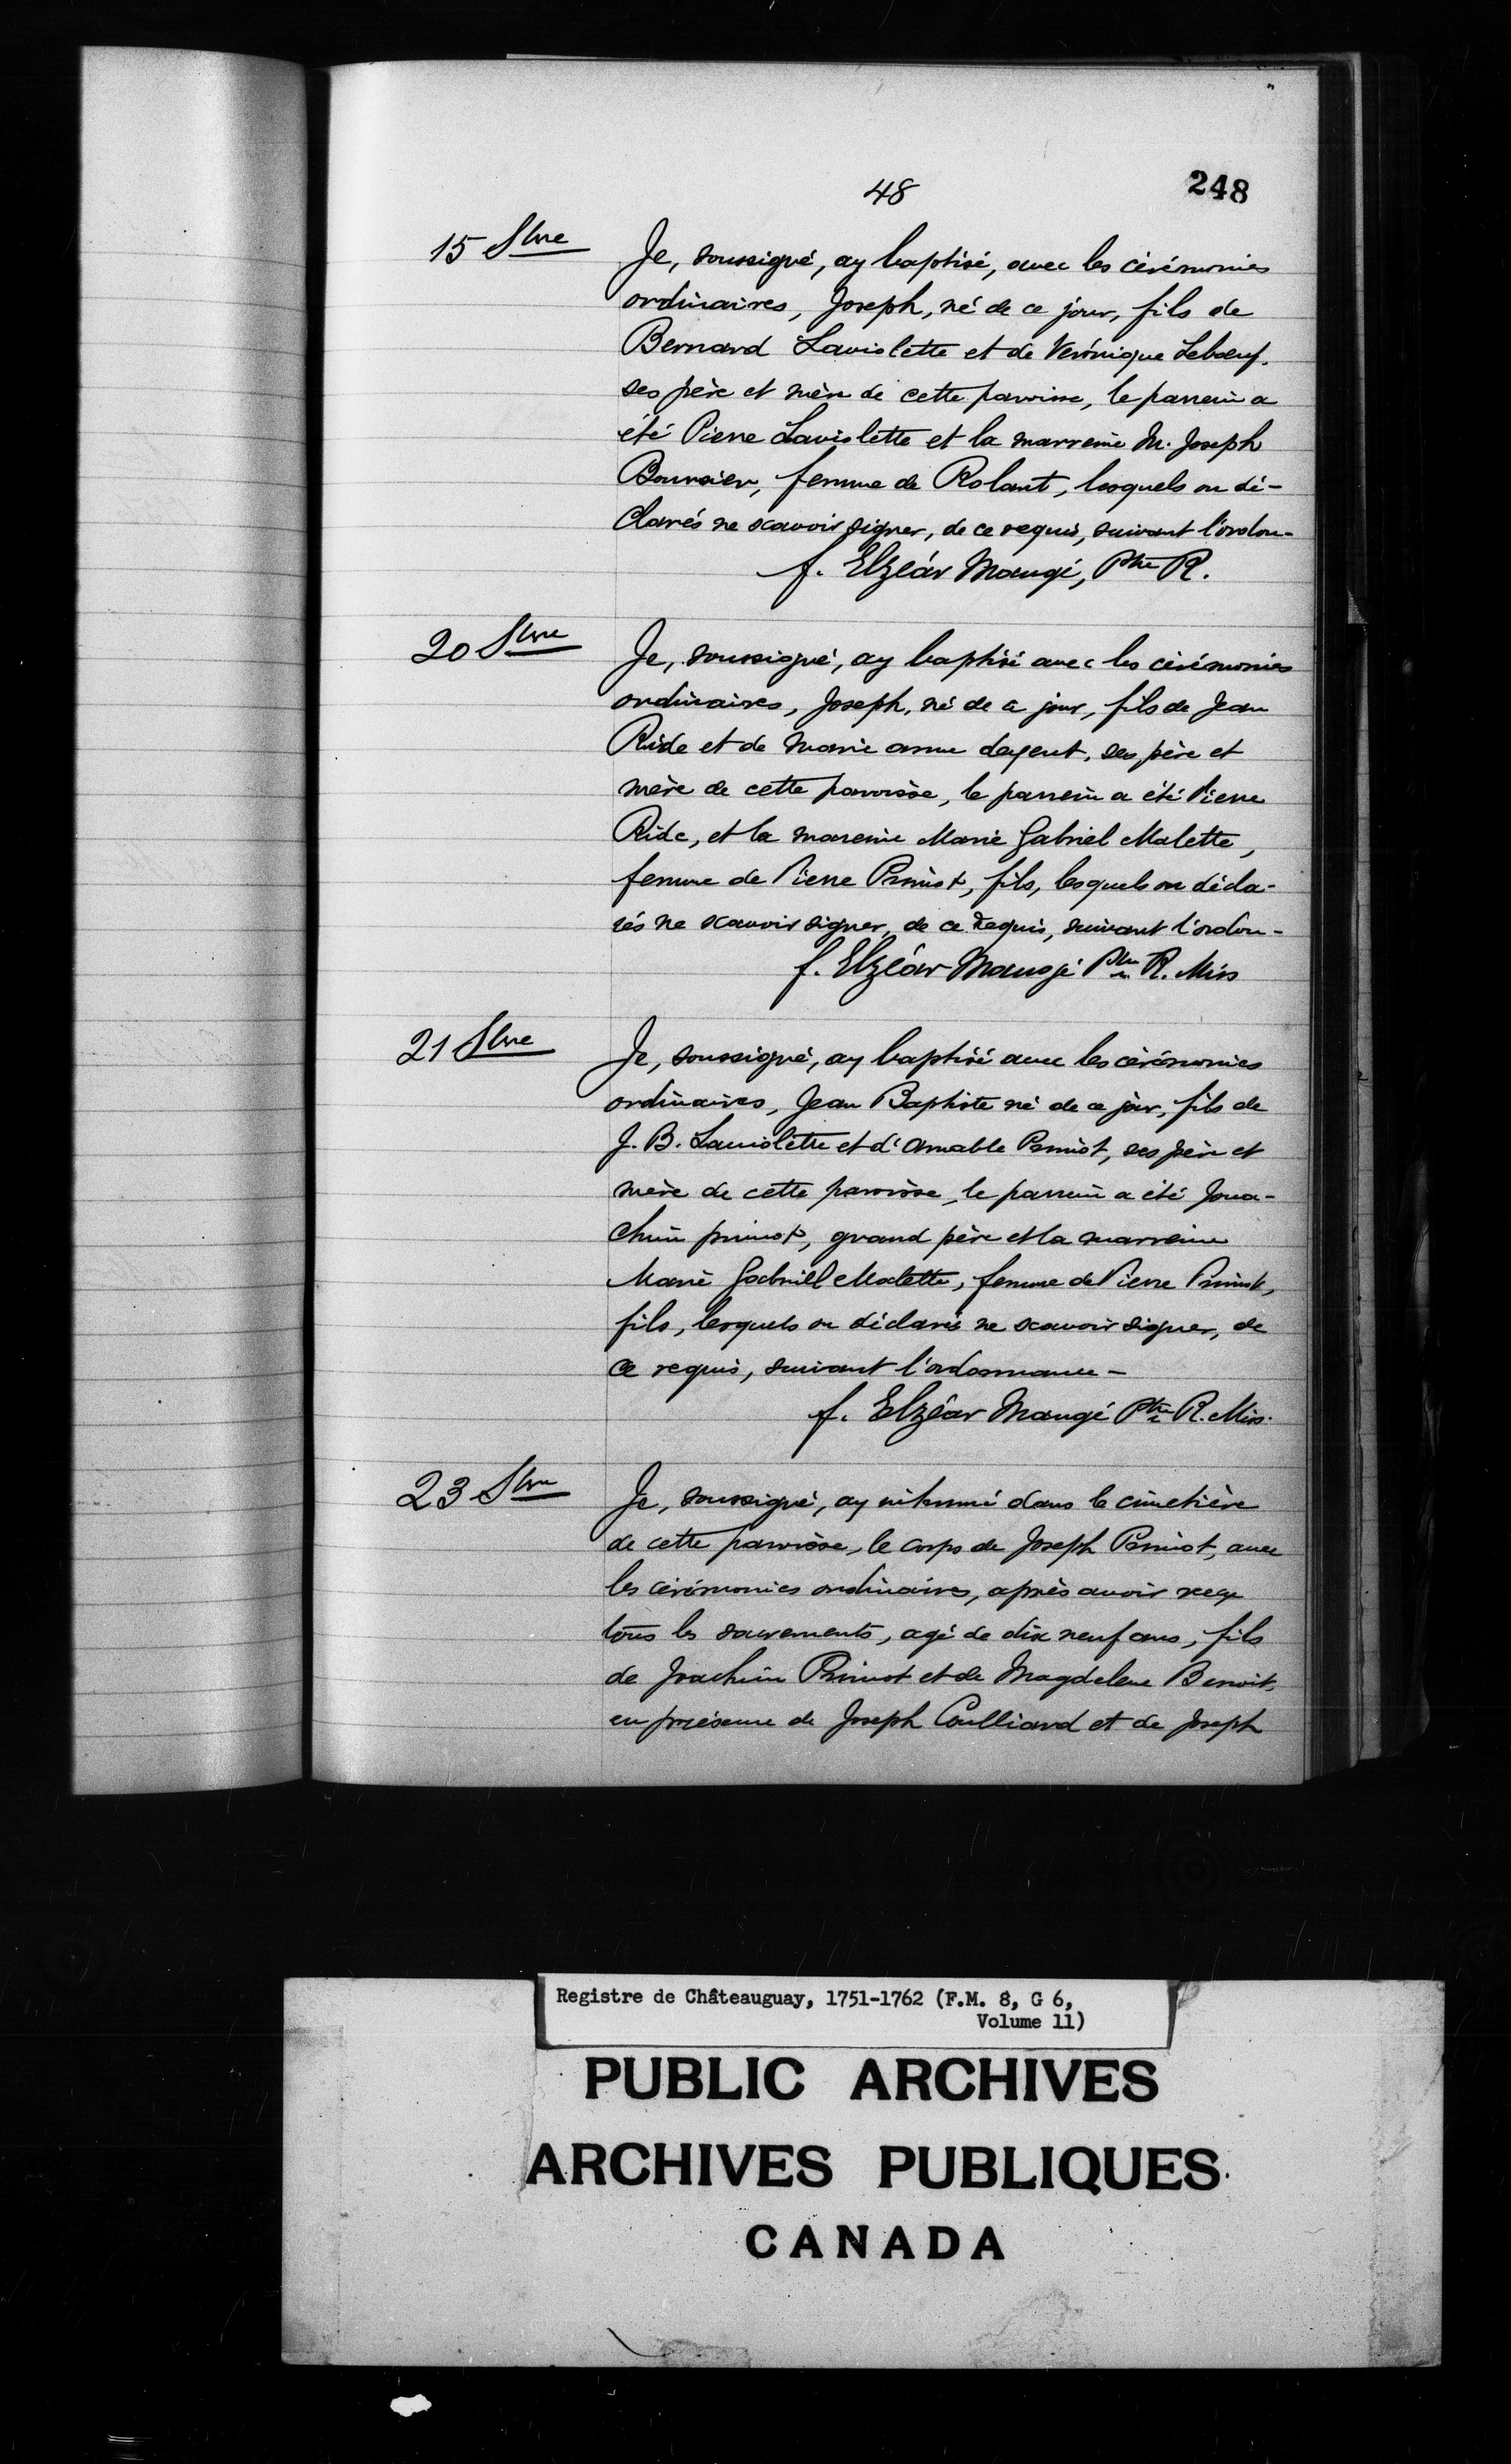 48
248
15 Sbre
Je, soussigné, ay baptisé, avec les cérémonies
ordinaires, Joseph, né de ce jour, fils de
Bernard Laviolette et de Veronique Leboeuf.
ses père et mère de cette paroisse, le parrein a
été Pierre Laviolette et la marreine M. Joseph
Boursier, femme de Rolant, lesquels on dé-
clarés ne scavoir signer, de ce requis, suivant l'ordon-
f. Elzéar Maugé, Ptre R.
20 Sbre
Je, soussigné, ay baptisé avec les cérémonies
ordinaires, Joseph, né de ce jour, fils de Jean
Ride et de Marie anne dagent, ses père et
mère de cette paroisse, le parrein a été Pierre
Ride, et la mareine Marie Gabriel Malette,
femme de Pierre Primot, fils, lesquels on décla-
rés ne scavoir signer, de ce requis, suivant l'ordon-
f. Elzéar Maugé Ptre R. Miss
21 Sbre
Je, soussigné, ay baptisé avec les cérémonies
ordinaires, Jean Baptiste né de ce jour, fils de
J. B. Laviolette et d'amable Primot, ses père et
mère de cette paroisse, le parrein a été Joua-
chim primot, grand père et la marreine
Marie Gabriell Malette, femme de Pierre Primot,
fils, lesquels on déclarés ne scavoir signer, de
ce requis, suivant l'ordonnance -
f. Elzéar Maugé Ptre R. Miss.
23 Sbre
Je, soussigné, ay inhumé dans le cimetière
de cette paroisse, le corps de Joseph Primot, avec
les cérémonies ordinaires, après avoir reçu
tous les sacrements, agé de dix neuf ans, fils
de Joachim Primot et de Magdelene Benoit,
en présence de Joseph Coulliard et de Joseph
Registre de Châteauguay, 1751-1762 (F.M. 8, G 6,
Volume 11)
PUBLIC ARCHIVES
ARCHIVES PUBLIQUES
CANADA